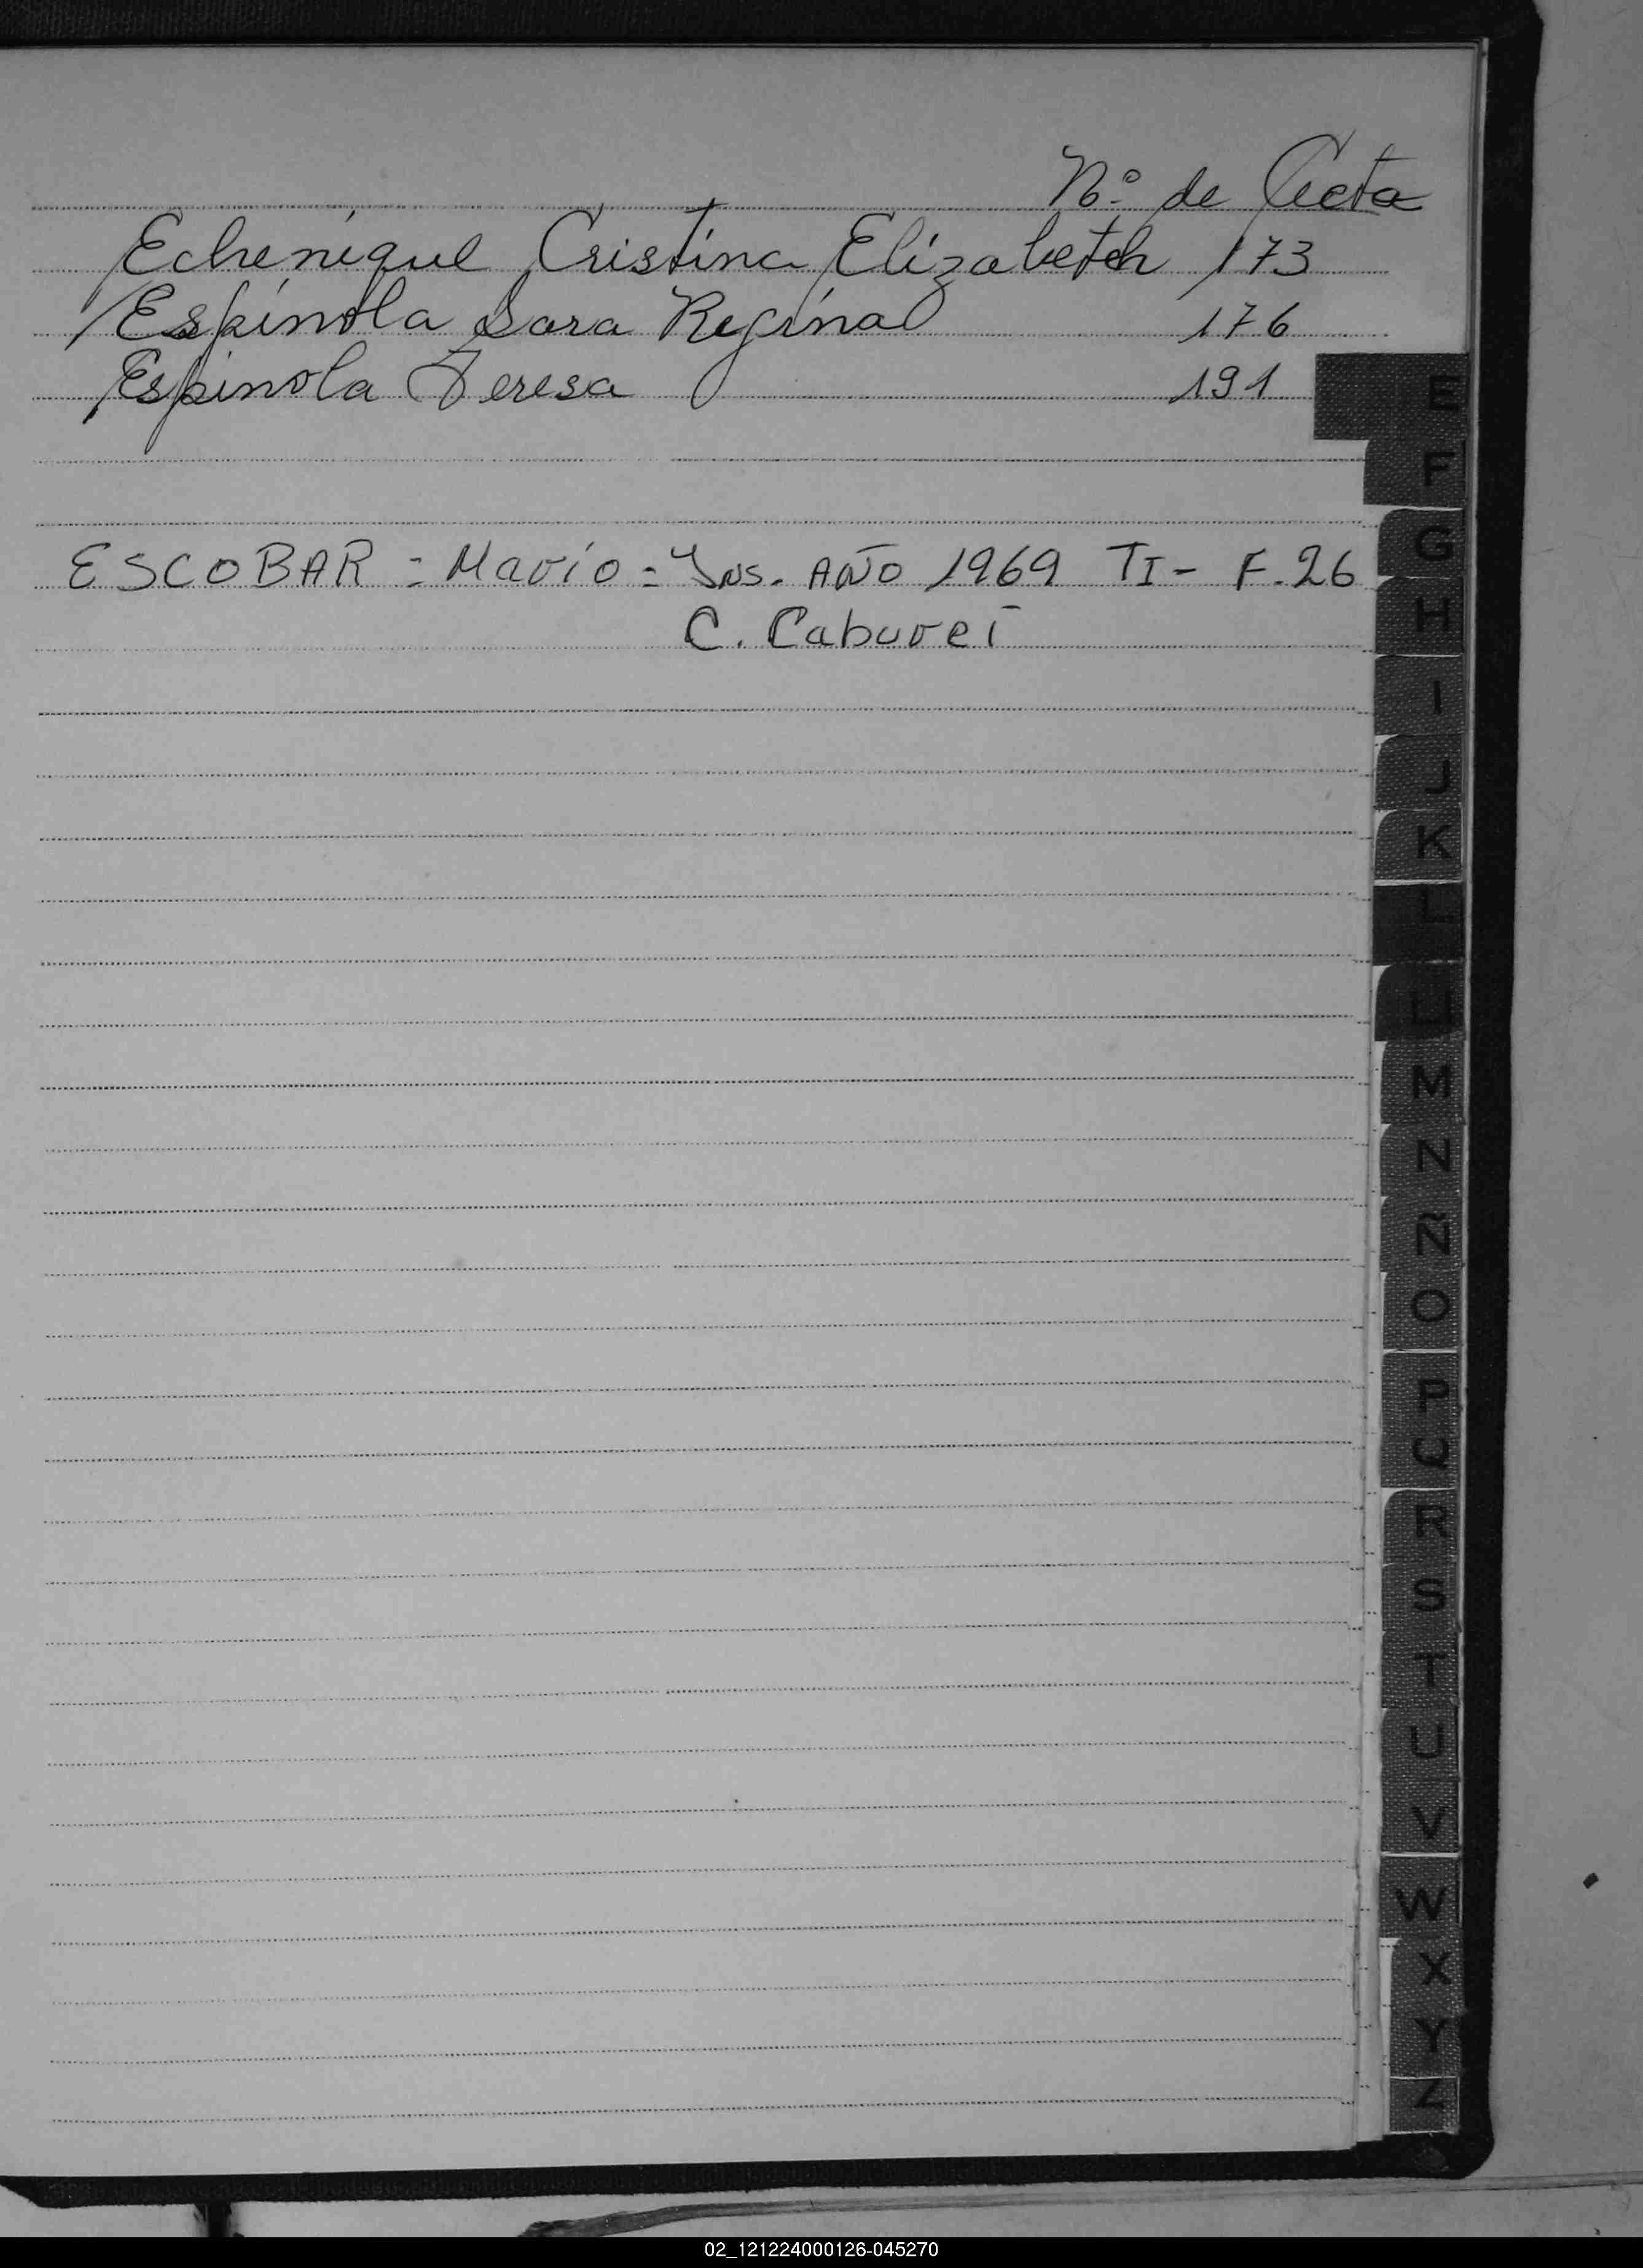 Nº. de Acta
Echenique Cristina Elizabeteh 173
Espínola Sara Regina 176
Espinola Teresa 191
ESCOBAR = Mario = Ins. AÑO 1969 TI - F. 26
C. Caburei
E
F
G
H
I
J
K
L
LL
M
N
Ñ
O
P
Q
R
S
T
U
V
W
X
Y
Z
02_121224000126-045270